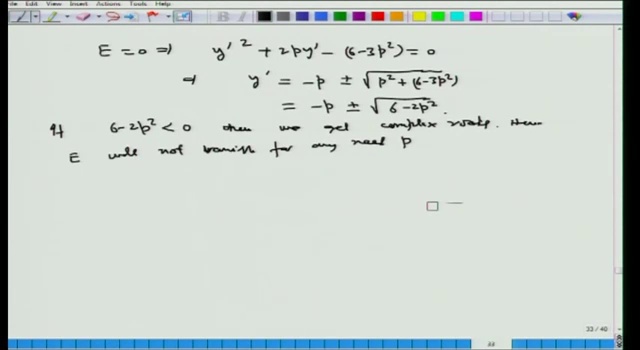 Edit View Insert Actions Tools Help
E = 0 ⇒ y'² + 2py' - (6-3p²) = 0
⇒ y' = -p ± √(p² + (6-3p²))
= -p ± √(6-2p²).
If 6-2p² < 0 then we get complex roots. Hence
E will not vanish for any real p
33 / 40
33